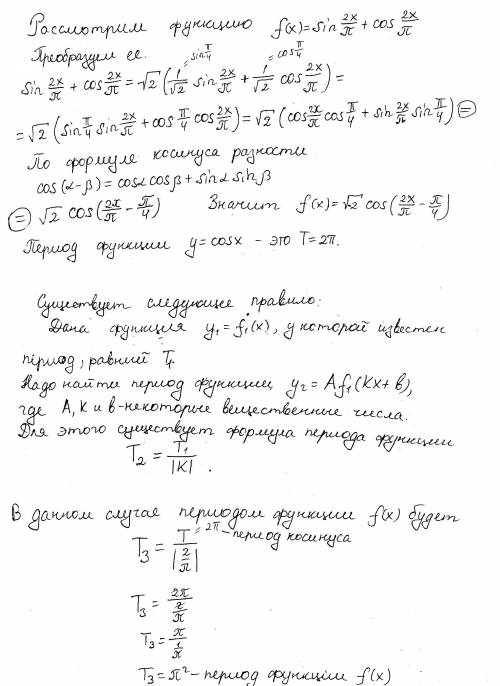 Рассмотрим функцию f(x)=sin 2x/π + cos 2x/π
Преобразуем ее.
=sin π/4 =cos π/4
sin 2x/π + cos 2x/π = √2 (1/√2 sin 2x/π + 1/√2 cos 2x/π) =
= √2 (sin π/4 sin 2x/π + cos π/4 cos 2x/π) = √2 (cos 2x/π cos π/4 + sin 2x/π sin π/4) =
По формуле косинуса разности
cos(α-β) = cosα cosβ + sinα sinβ
= √2 cos(2x/π - π/4) Значит f(x)=√2 cos(2x/π - π/4)
Период функции y=cosx - это T=2π.
Существует следующее правило:
Дана функция y₁=f₁(x), у которой известен
период, равный T₁.
Надо найти период функции y₂=Af₁(Kx+в),
где A, K и в-некоторые вещественные числа.
Для этого существует формула периода функции
T₂ = T₁/|K| .
В данном случае периодом функции f(x) будет
T₃ = T/|2/π| =2π-период косинуса
T₃ = 2π/(2/π)
T₃ = π/(1/π)
T₃ = π² - период функции f(x)